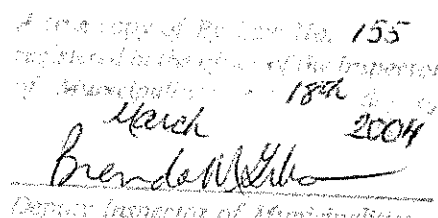 A true copy of By-Law No. 155
registered in the office of the Inspector
of Municipalities 18th day of
March 2004
Brenda M Gibson
Deputy Inspector of Municipalities